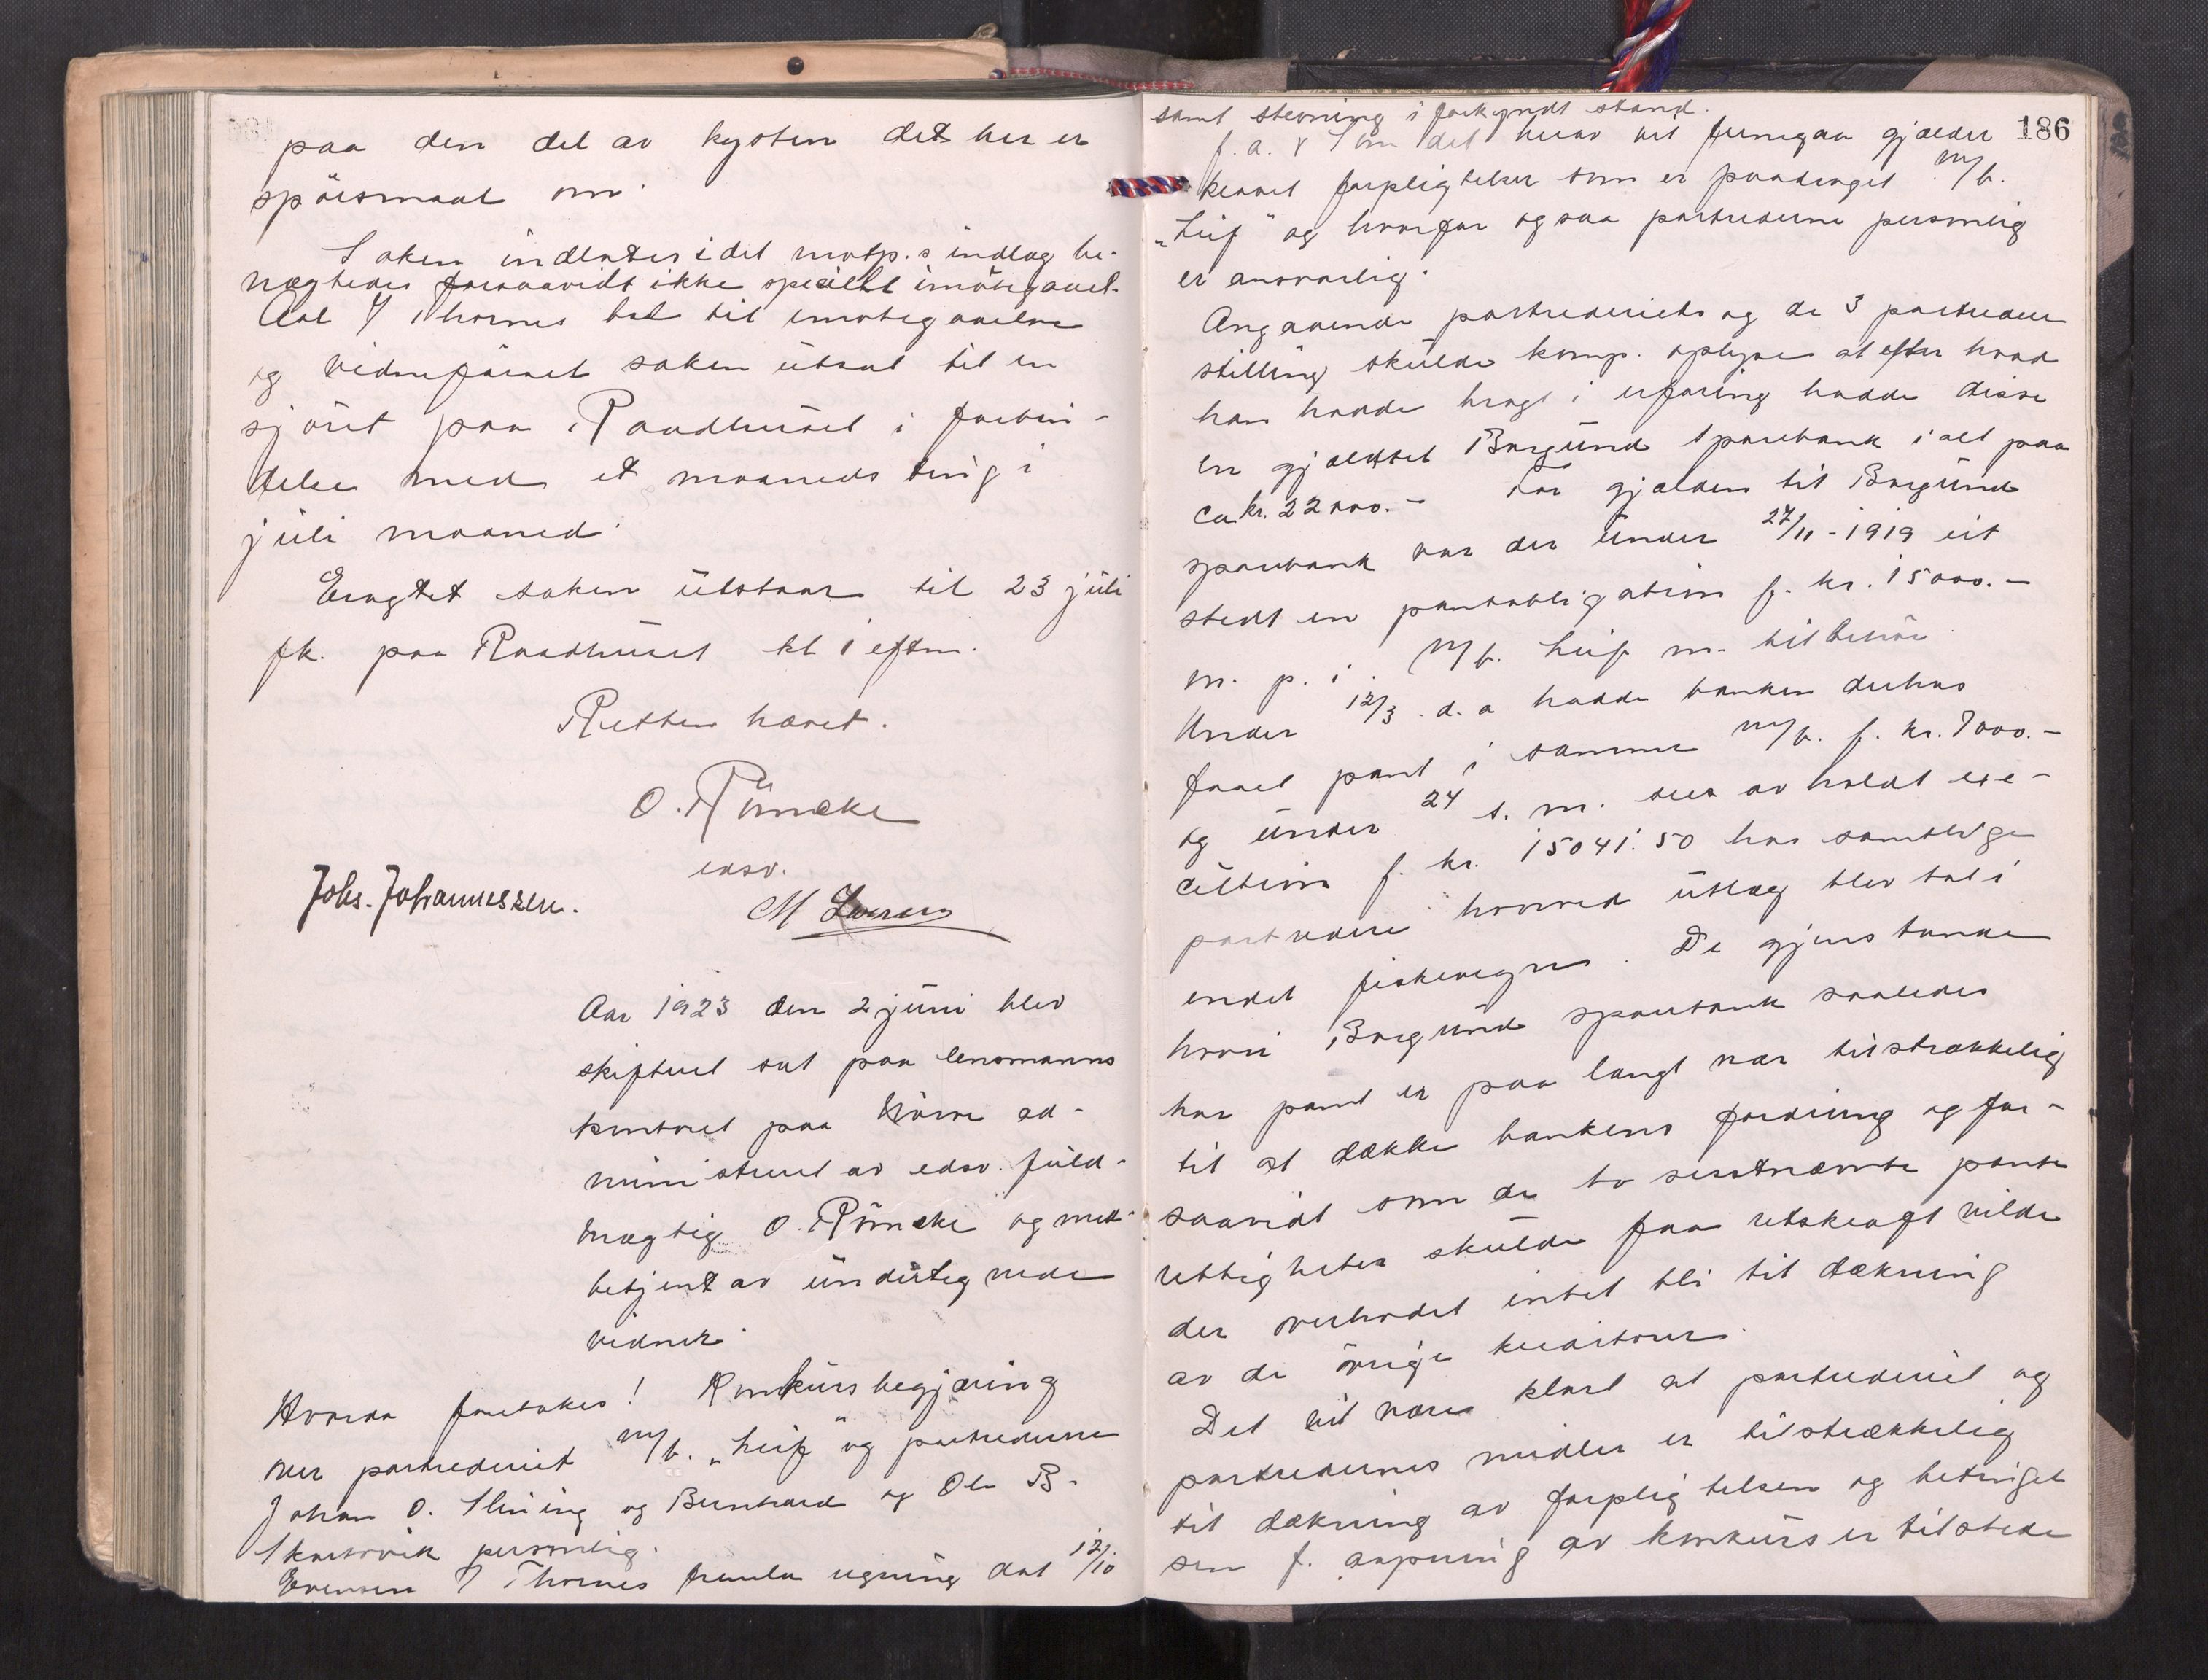 paa den del av kysten det her er
spörsmaal om.
Saken indlates idet motp.s indlæg be-
nægtedes forsaavidt ikke specielt imötegaaet.
Adv. Thornes bad til imötegaaelse
og vidneförsel saken utsat til en
sjöret paa Raadhuset i forbin-
delse med et maaneds ting i
juli maaned.
Eragtet saken utstaar til 23 juli
fk. paa Raadhuset kl 1 eftm.
Retten hævet.
O. Römcke
edsv.
Johs. Johannessen.
M
Aar 1923 den 2 juni blev
skifteret sat paa lensmanns
kontoret paa Nörve ad-
ministreret av edsv. fuld-
mægtig O. Römcke og med-
betjent av undertegnede
vidner.
Hvorda foretokes! Konkursbegjæring
over partrederiet m/b. „Leif" og partrederne
Johan O. Slining og Bernhard og Ole B.
personlig.
Thornes freml. regning dat 12/10
186
samt stevning i forkyndt stand.
f. a. v Som det herav vil fremgaa gjælder
kravet forpligtelser som er paadraget m/b.
„Leif" og hvorfor ogsaa partrederne personlig
er ansvarlig.
Angaaende partrederiets og de 3 partreders
stilling skulde komp. oplyse at efter hvad
han hadde bragt i erfaring hadde disse
en gjæld til Borgund Sparebank i alt paa
ca kr. 22000.- For gjælden til Borgund
sparebank var der under 27/11-1919 ut
stedt en panteobligation f. kr. 15000.-
m. p. i m/b. Leif m. tilbehör
Under 12/3 d. a hadde banken derhos
faaet pant i samme m/b. f. kr. 7000.-
og under 24 s. m. avholdt exe-
cution f. kr. 15041.50 hos samtlige
partredere hvorved utlæg blev tat i
endel fiskevegn. De gjenstande
hvori Borgund sparebank saaledes
har pant er paa langt nær tilstrækkelig
til at dække bankens fordring og for-
saavidt som de to sisstnævnte pante
rettigheter skulde faa retskraft vilde
der overhodet intet bli til dækning
av de övrige kreditorer.
Det vil være klart at partrederiet og
partredernes midler er tilstrækkelig
til dækning av forpligtelsen og betingel
sen f. aapning av konkurs er tilstede